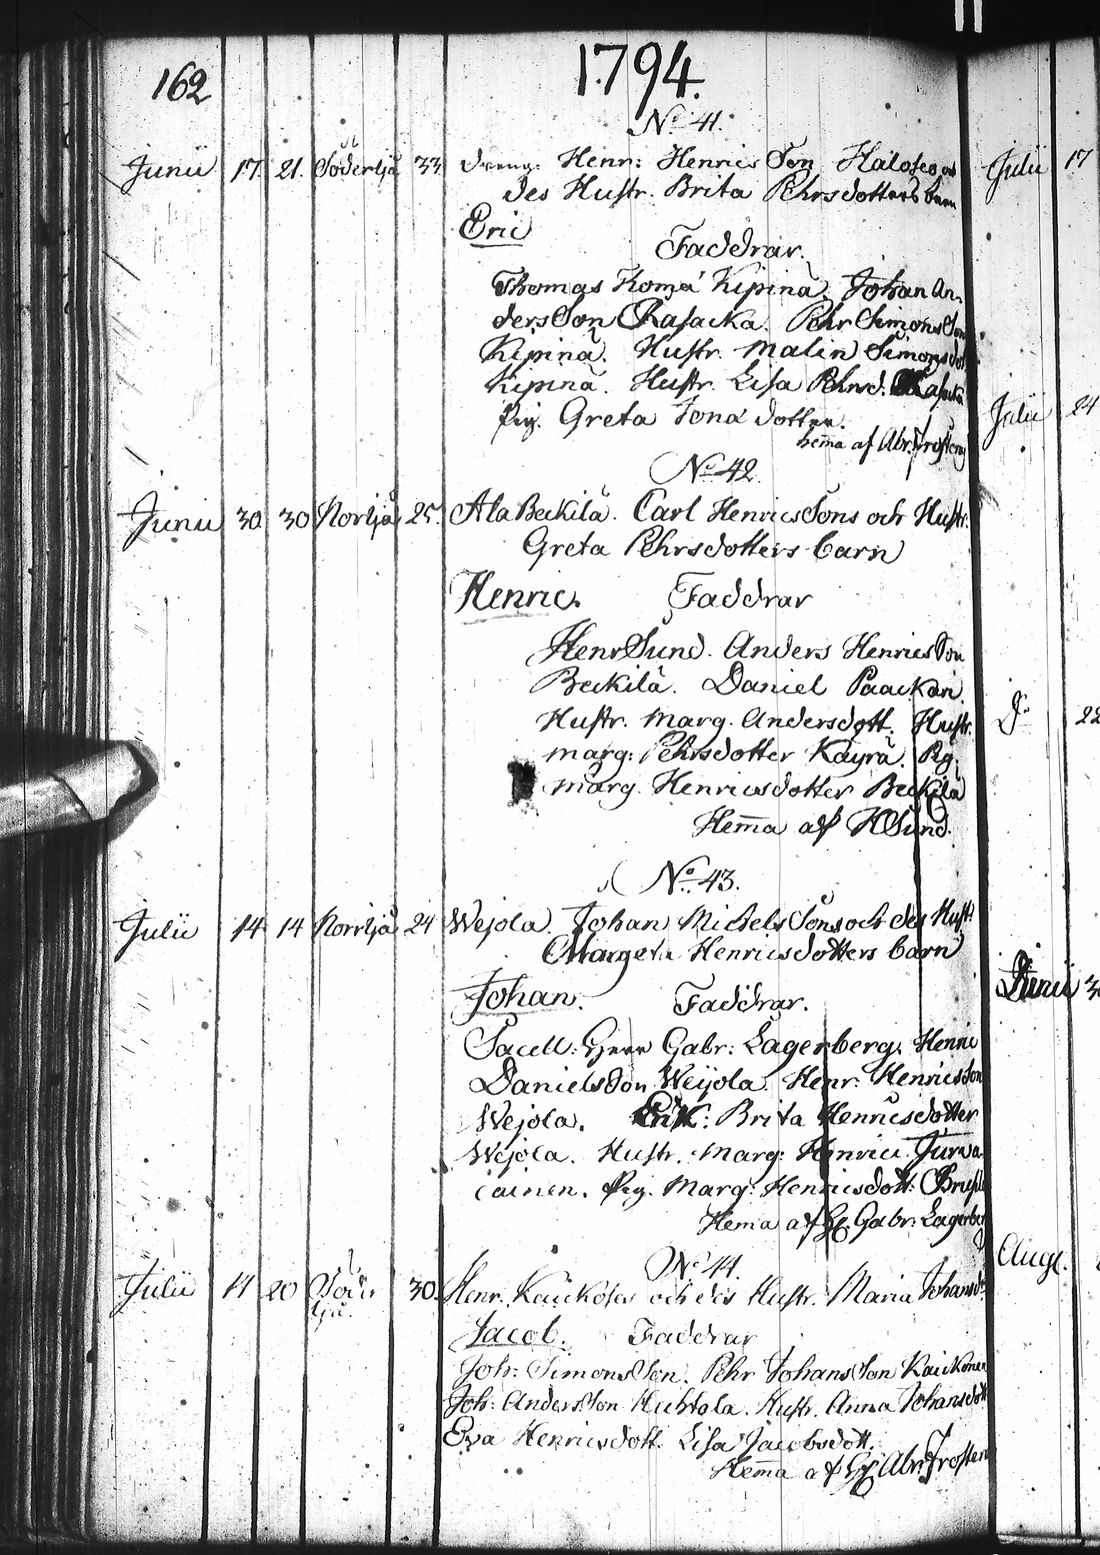 162
1794.
No 41.
Junii 17. 21. Söderljå 33. Dreng. Henr: Henrics Son
des Hustr. Brita Pehrsdotters barn
Eric
Faddrar.
Thomas Kipinä. Johan An-
ders Son Rasacka. Pehr Simons Son
Kipinä. Hustr. Malin Simonsdot
Kipinä. Hustr. Lisa Pehrsd. Rasacka
Pig. Greta Jona dotter.
hema af Abr. Frosterus
No 42.
Junii 30. 30 Norrljå 25. Ala Beckilä. Carl Henrics Sons och Hustr.
Greta Pehrsdotters barn
Henric. Faddrar
Henr Sund. Anders Henrics Son
Beckilä. Daniel Paackari
Hustr. Marg. Andersdott. Hustr.
Marg: Pehrsdotter Kayrä. Pig.
Marg. Henricsdotter Beckilä
Hema af HSund.
No 43.
Julii 14 14 Norrljå 24 Wejola. Johan Michels Sons och des Hust:
Margeta Henricsdotters barn
Johan. Faddrar.
Sacell: Herr Gabr: Lagerberg. Henric
Daniels Son Weijola. Henr: Henrics Son
Wejola. Enk: Brita Henricsdotter
Wejola. Hustr. Marg: Henrici Turwa
iainen. Pig. Marg: Henricsdott:
Hema af H. Gabr: Lagerberg
No 44.
Julii 11 20 Söder
ljå. 30. Henr. och des Hustr. Maria Johansd.
Jacob. Faddrar
Joh: Simons Son. Pehr Johans Son Kaickonen
Joh: Anders Son Huhtala. Hustr. Anna Johansdott
Eva Henricsdott. Lisa Jacobsdott.
Hema af H. Abr. Frosterus
Julii 17
Julii 24
Do 22
Junii 30
Aug.